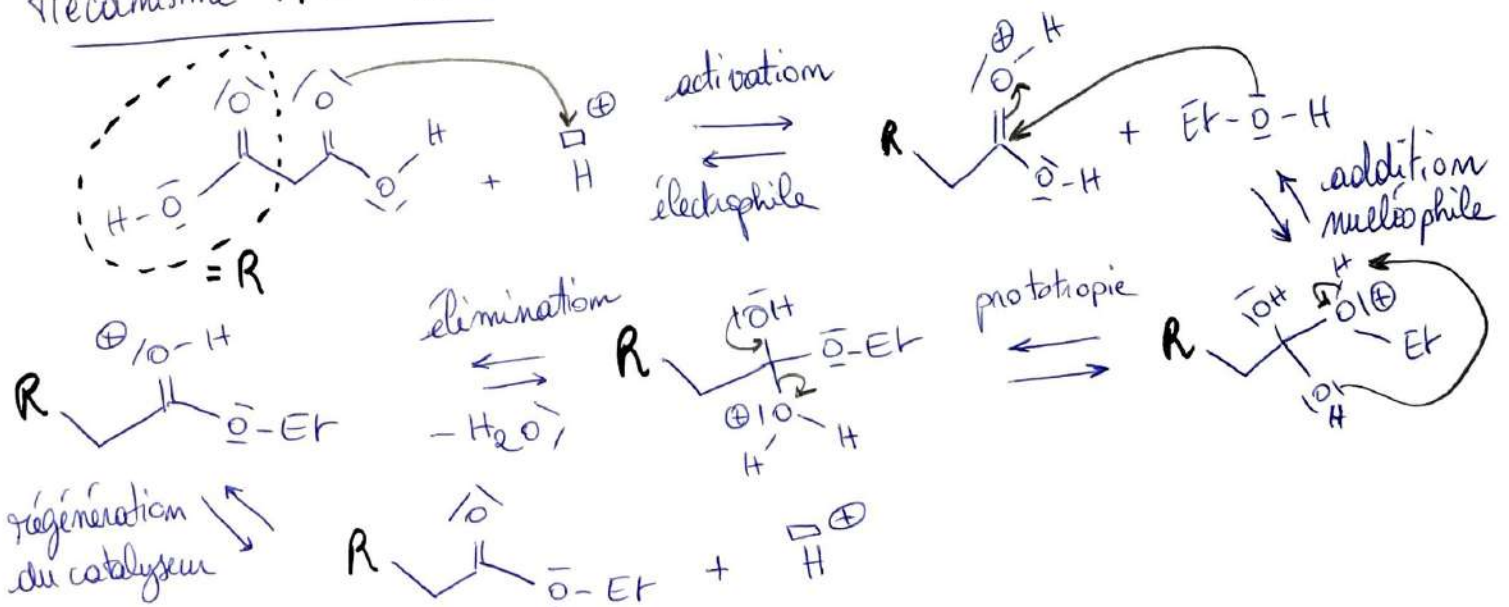 Mécanisme
activation
électrophile
H - O
O
O
O
H
+
H
⊕
= R
R
⊕
O
H
O-H
+
Et-O-H
addition
nucléophile
R
OH
H
O
⊕
Et
O
H
prototropie
R
OH
O-Et
⊕ O
H
H
élimination
- H₂O
R
⊕
O-H
O-Et
régénération
du catalyseur
R
O
O-Et
+
H
⊕